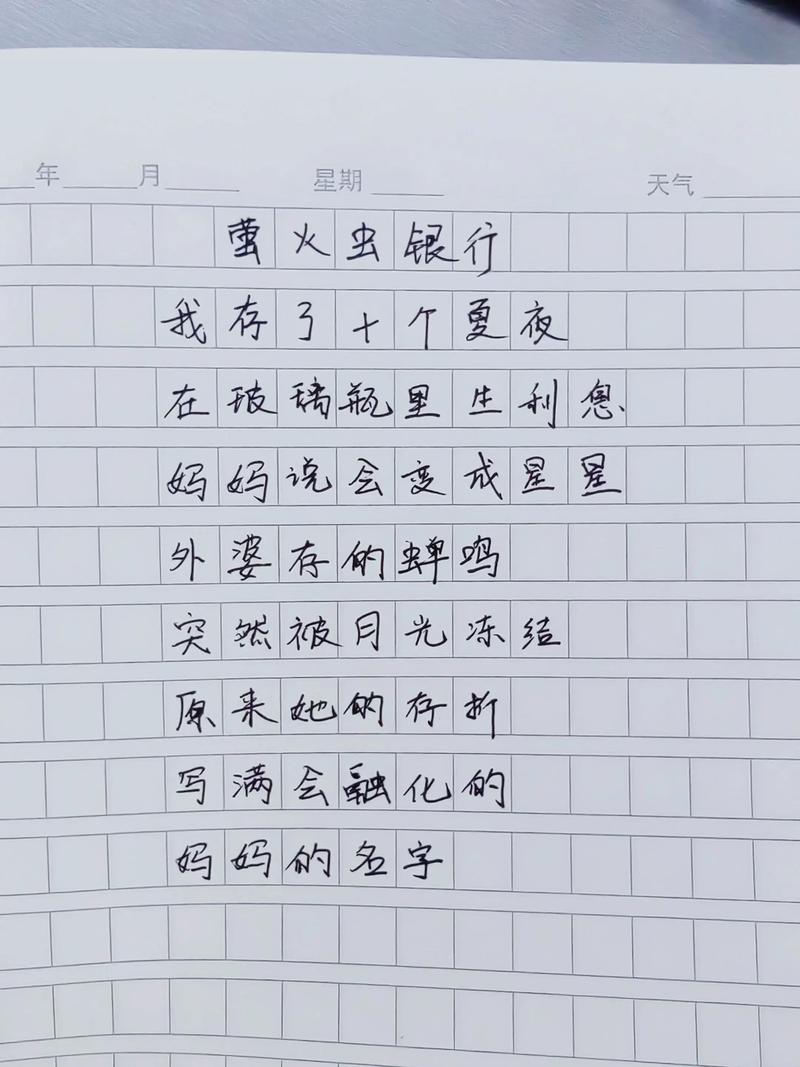 年 月 星期 天气
萤火虫银行
我存了十个夏夜
在玻璃瓶里生利息
妈妈说会变成星星
外婆存的蝉鸣
突然被月光冻结
原来她的存折
写满会融化的
妈妈的名字